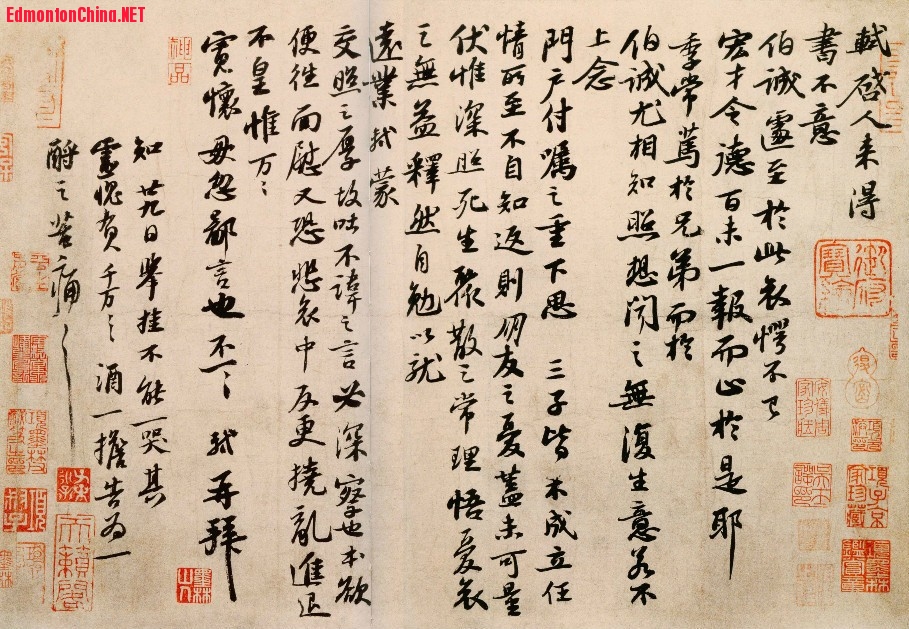 EdmontonChina.NET
軾啓人来得
書不意
伯誠遽至於此哀愕不已
宏才令德百未一報而止於是耶
季常篤於兄弟而於
伯誠尤相知照想聞之無復生意若不
上念
門户付囑之重下思三子皆未成立任
情所至不自知返則朋友之憂蓋未可量
伏惟深照死生聚散之常理悟憂哀
之無益釋然自勉以就
遠業軾蒙
交照之厚故吐不諱之言必深察也本欲
便往面慰又恐悲哀中反更撓亂進退
不皇惟万〻
寬懷毋忽鄙言也不一〻軾再拜
知廿九日舉挂不能一哭其
靈愧負千万〻酒一擔告為一
酹之苦痛〻
御府寶繪
神品
項子京家珍藏
天籟閣
墨林山人